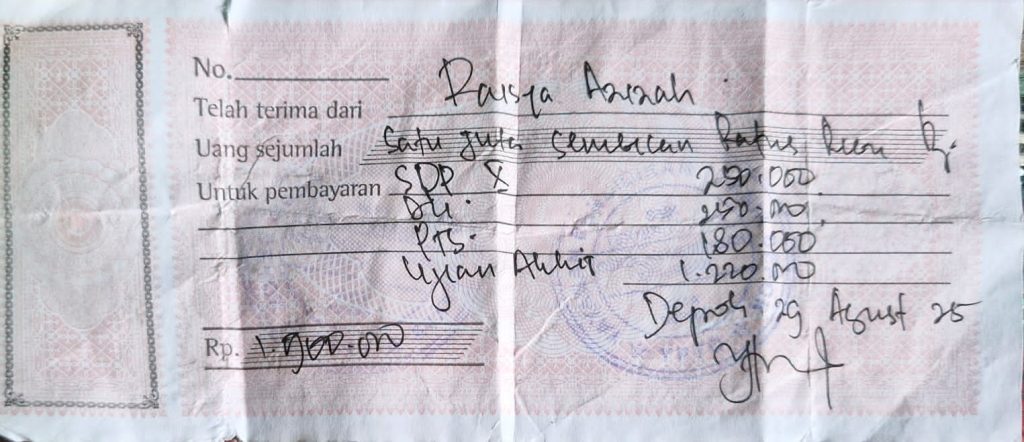 No.
Telah terima dari Raisya Azizah
Uang sejumlah Satu juta Sembilan Ratus Ribu Rp.
Untuk pembayaran SPP X 250.000
DU. 250.000
PTS. 180.000
Ujian Akhir 1.220.000
Depok 29 Agust 25
Rp. 1.900.000